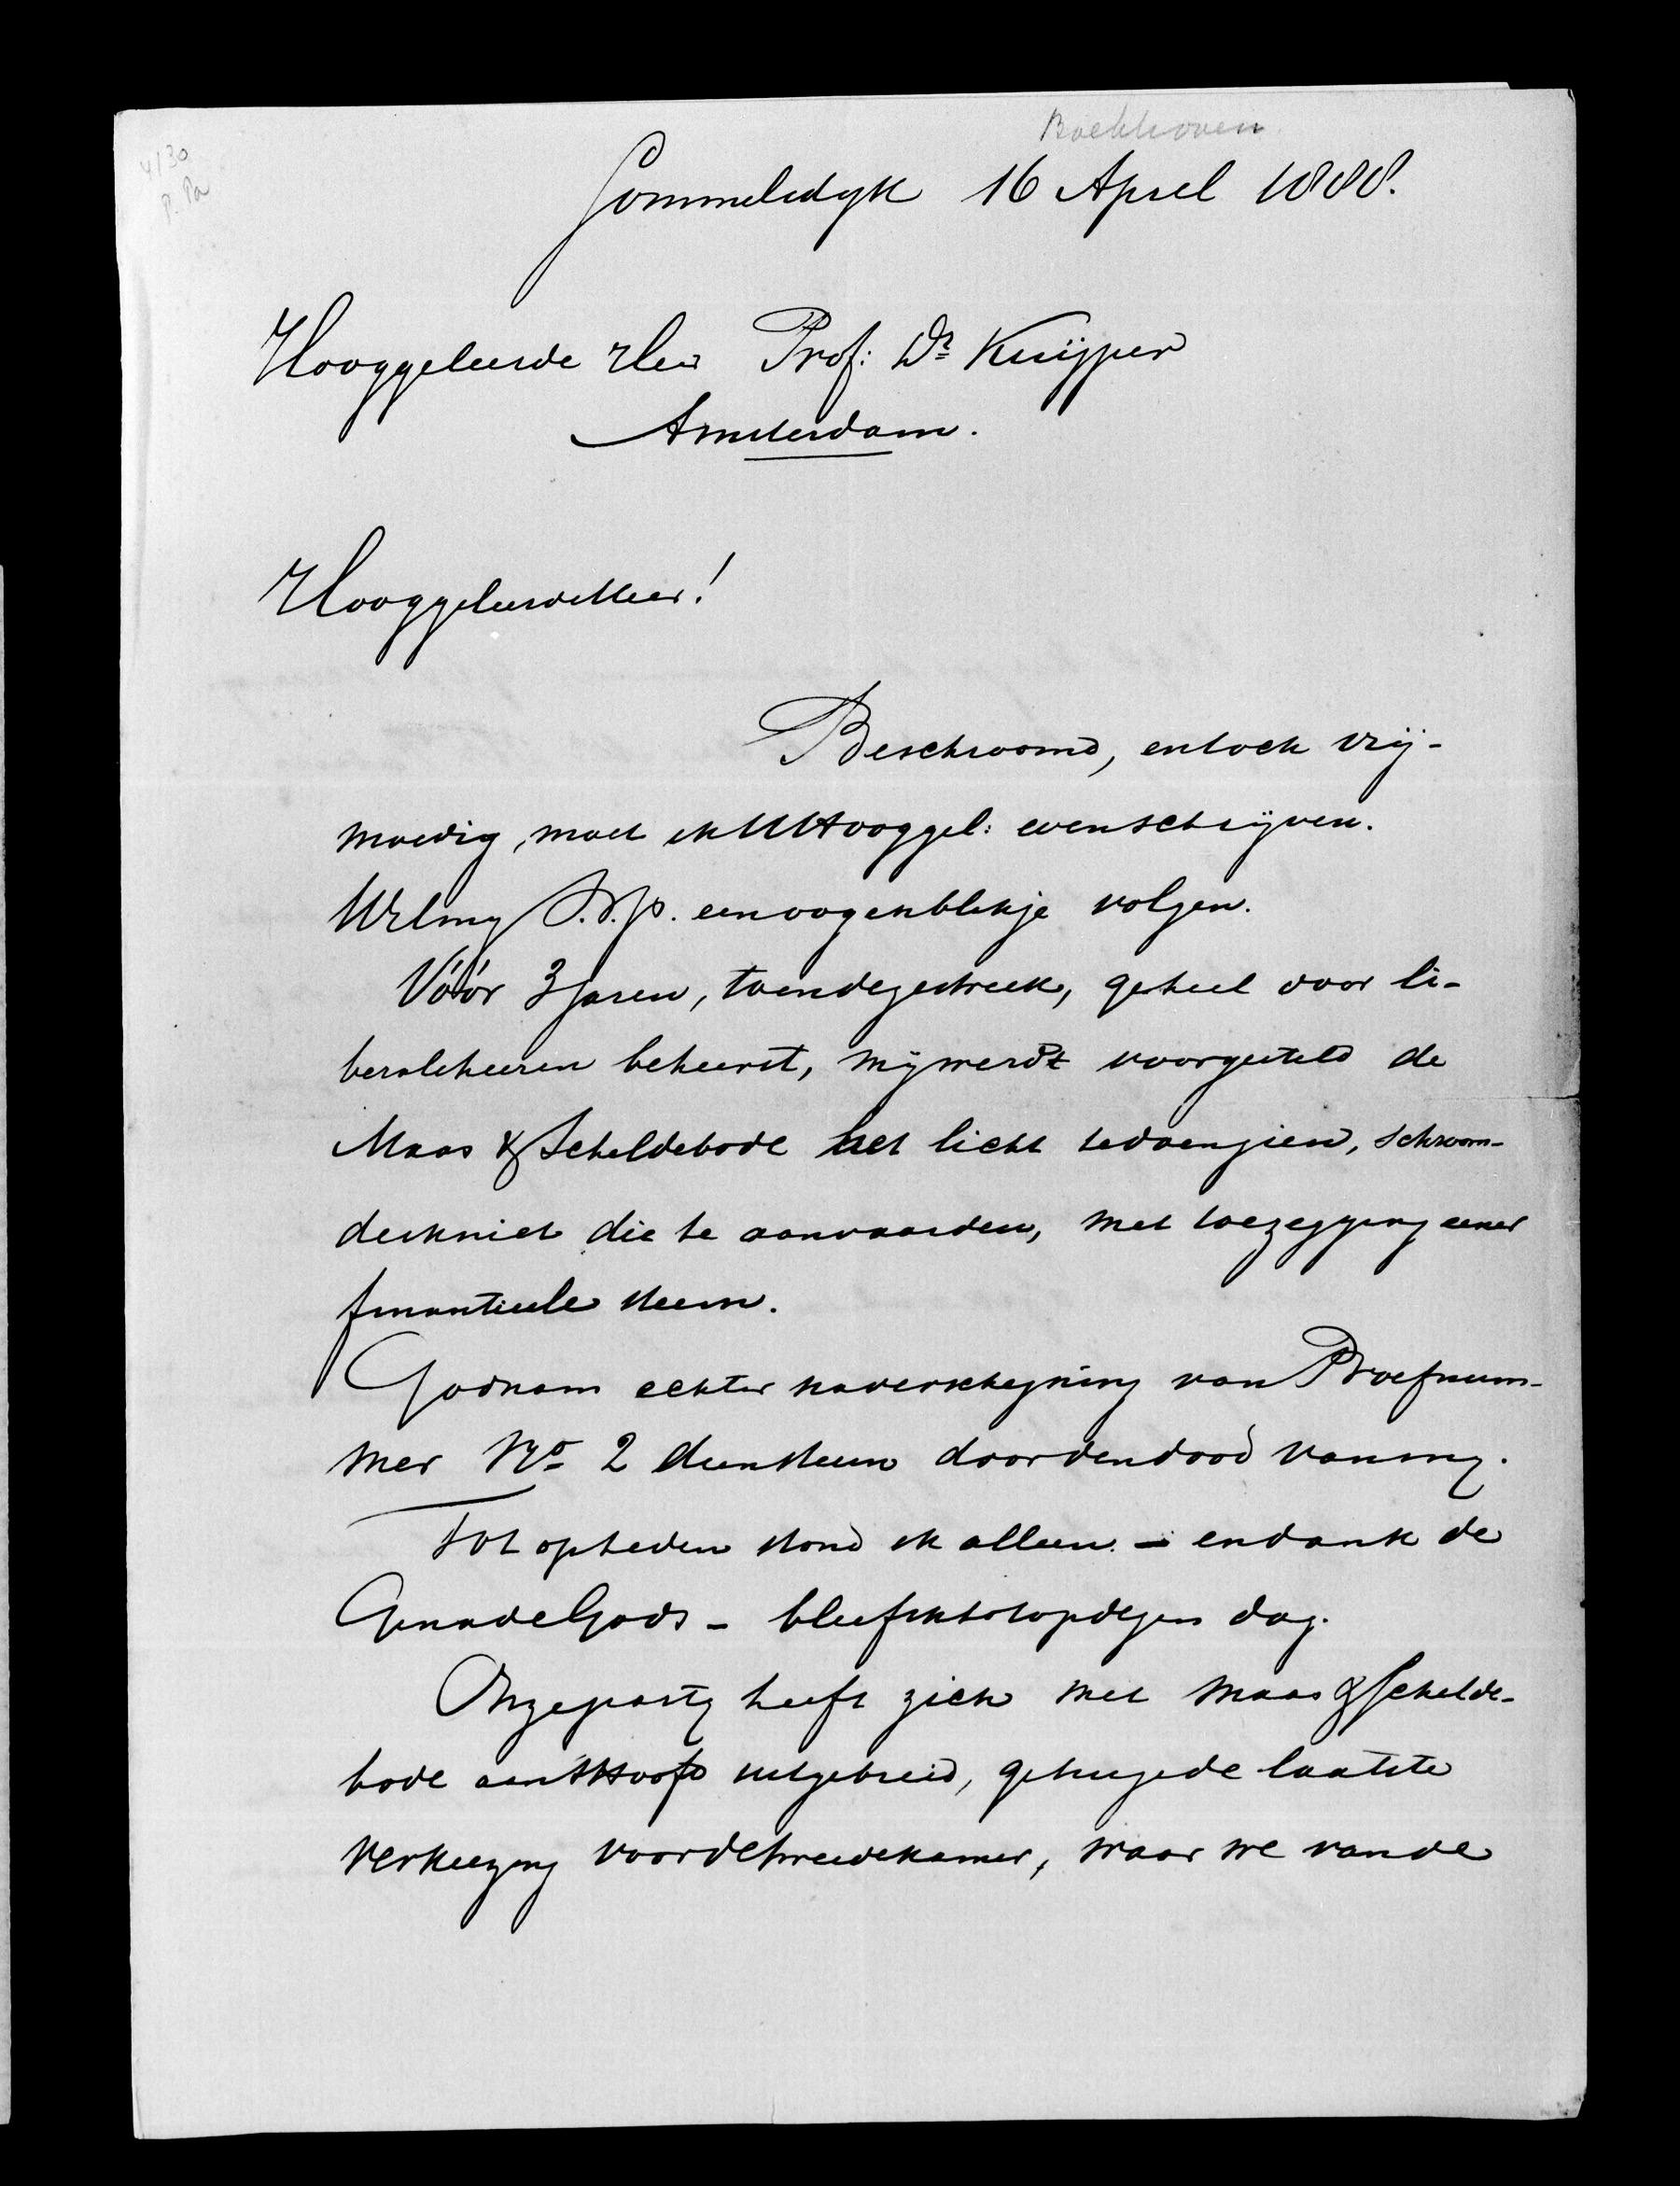 Boekhoven
4/30
P. Pa
Sommelsdyk 16 April 1888.
Hooggeleerde Heer Prof: Dr Kuijper
Amsterdam.
Hooggeleerde Heer!
Beschroomd, en toch vrij-
moedig, moet ik UHooggel: even schrijven.
Wil my S.V.P. een oogenblikje volgen.
Vóór 3 jaren, toen deze streek, geheel door li-
berale heeren beheerst, mij werdt voorgesteld de
Maas & Scheldebode het licht te doen zien, schroom-
de ik niet die te aanvaarden, met toezegging eener
finantieele steun.
God nam echter na verschijning van Proefnum-
mer No 2 dien steun door den dood van my.
Tot op heden stond ik alleen - en dank de
Genade Gods - bleef ik tot op dezen dag.
Onze party heeft zich met Maas & Schelde-
bode aan 't Hoofd uitgebreid, getuige de laatste
verkiezing voor de tweede kamer, waar we van de